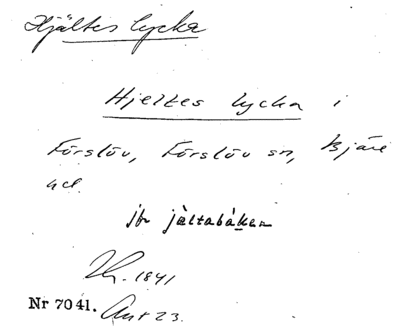 Hjältes lycka
Hjeltes lycka i
Förslöv, Förslöv sn, Bjäre
hd.
jfr jältabáken
Lh. 1841
Nr 7041. Ant 23.